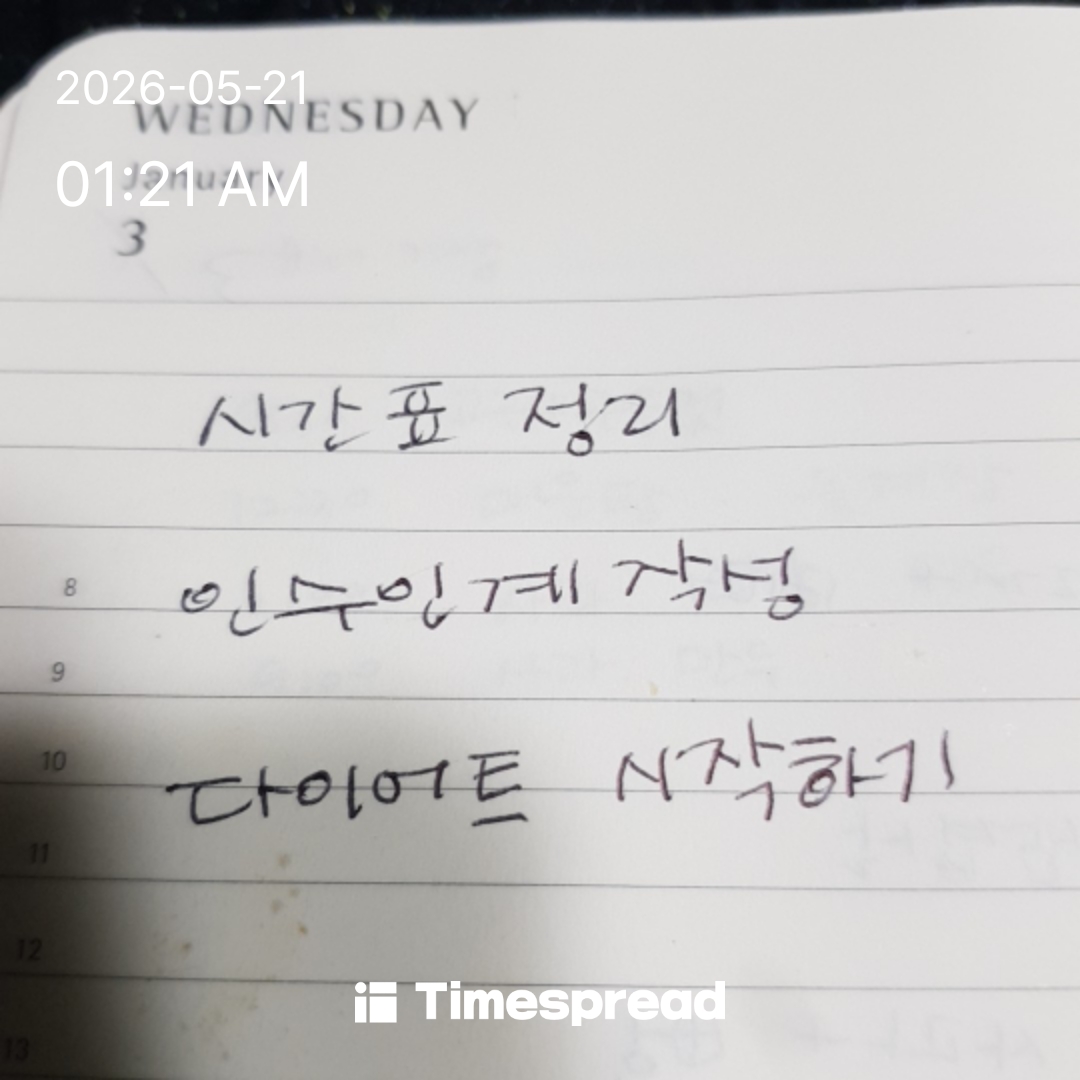 2026-05-21
WEDNESDAY
01:21 AM
January
3
시간표 정리
8
인수인계 작성
9
10
다이어트 시작하기
11
12
13
Timespread